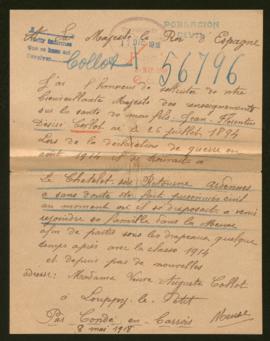 POBLACION
CIVIL
A Sa Majesté le Roi d'Espagne
Collot
56796
J'ai l'honneur de solliciter de votre
bienveillante Majesté des renseignements
sur la santé de mon fils Jean Florentin
Désiré Collot né le 26 juillet 1894
Lors de la déclaration de guerre en
août 1914 il se trouvait à
Le Chatelet sur Retourne Ardennes
a sans doute été fait prisonnier civil
au moment où il se disposait à venir
rejoindre sa famille dans la Meuse
afin de partir sous les drapeaux quelque
temps après avec la classe 1914
et depuis pas de nouvelles
adresse: Madame Veuve Auguste Collot
à Louppy-le-Petit
Par Condé en Barrois Meuse
8 mai 1918